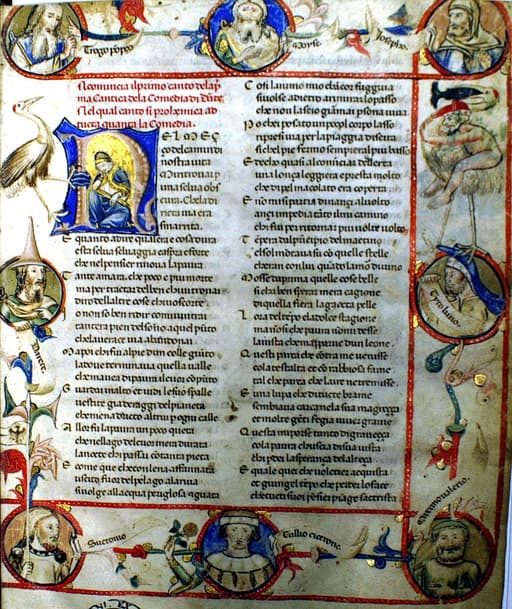 Trogo pōpeo
Moyse
Josepho.
Jncomincia il primo canto dela p͂
ma Cantica dela Comedia di Dāte
El qual canto si prohemiça ad
tucta quanta la Comedia.
NEL MEÇ
ço del camin di
nostra uita
Mi ritrouai p
una selua obs
cura. Che la di
ricta uia era
smarrita.
E quanto adire qual era e cosa dura
esta selua seluaggia e aspra e forte
che nel penser rinoua la paura
Tante amara che poco e piu morte
ma per tractar del ben chi ui trouai
diro dellaltre cose chio uo scorte
Jo non so ben ridir comio uintrai
tantera pien del sōno a quel pūto
che la uerace uia abandonai
Ma poi chi fui al pie dum colle giūto
la doue terminaua quella ualle
che mauea di paura el cuor cōpūto
Guardai in alto et uidi le sue spalle
uestite gia de raggi del pianeta
che mena dricto altrui p ogni calle
Allor fu la paura un poco queta
che nel lago del cuor mera durata
la nocte chi passai cō tanta pieta
E come quei che con lena affannata
uscito fuor del pelago a la riua
si uolge allacqua perigliosa e guata
Cosi lanimo mio chācor fuggiua
si uolse adietro a rimirar lo passo
che non lascio giāmai psona uiua
Poi chei posato un poco il corpo lasso
ripresi uia per la piaggia diserta
si chel pie fermo sempre era l piu basso
Et ecco quasi al cominciar dellerta
una lonça leggiera e presta molto
che di pel macolato era coperta
E nō mi si partia dinançi al uolto
ançi impedia tāto il mio camino
chi fui per ritornar piu uolte uolto
Tempera dal principio del matino
el sol montaua su cō quelle stelle
cheran con lui quādo lamor diuino
Mosse dapprima quelle cose belle
si cha bene sperar mera cagione
di quella fiera la gaecta pelle
Lora del tēpo e la dolce stagione
ma non si che paura nō mi desse
la uista che mapparue dun leone
Questi parea che cōtra me uenisse
cola testa alta et cō rabbiosa fame
si che parea che laire ne tremisse
E una lupa che di tucte brame
sembiaua carca nela sua magreçça
et molte gēti fegia uiuer grame
Questa mi porse tanto di graueçça
cola paura chuscia di sua uista
chi perdei la sperança de lalteça
E quale quei che uolētier acquista
et giungel tēpo che perder lo face
che tucti suoi pēsier piāge sactrista
Darete
Tito liuio.
Suetonio
Tullio cicerone
Marcoualerio.